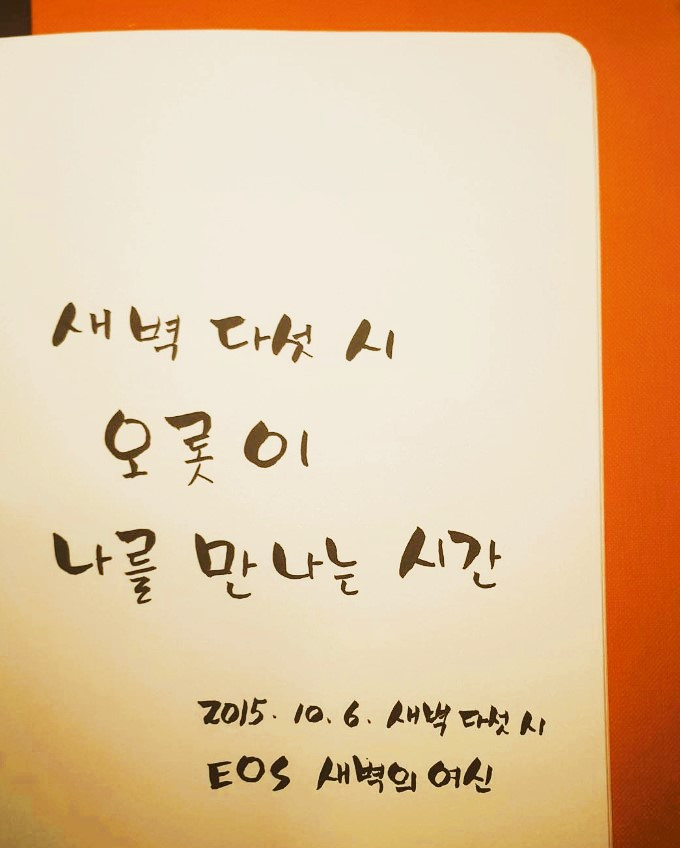 새벽 다섯 시
오롯이
나를 만나는 시간
2015. 10. 6. 새벽 다섯 시
EOS 새벽의 여신